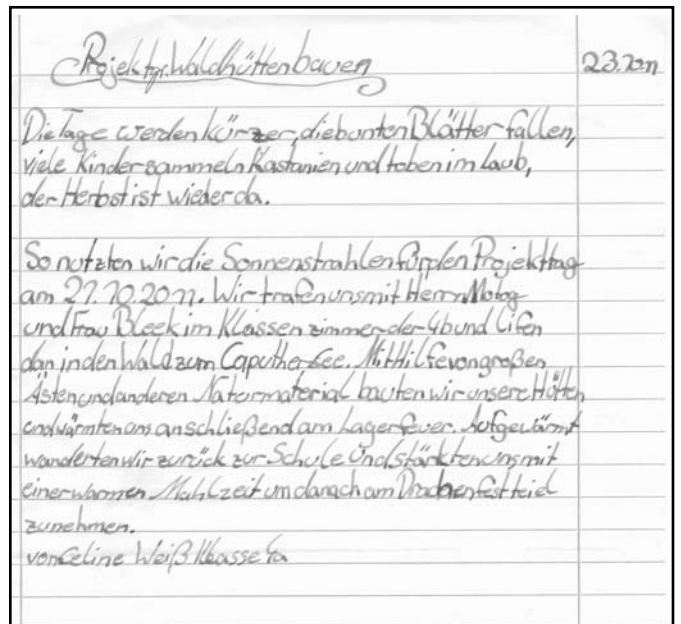 Projektgr. Waldhüttenbauen 23.2011
Die Tage werden kürzer, die bunten Blätter fallen,
viele Kinder sammeln Kastanien und toben im Laub,
der Herbst ist wieder da.
So nutzten wir die Sonnenstrahlen für den Projekttag
am 21.10.2011. Wir trafen uns mit Herrn
und Frau Bleek im Klassenzimmer der 4b und liefen
dan in den Wald zum Caputher See. Mit Hilfe von großen
Ästen und anderen Naturmaterial bauten wir unsere Hütten
und wärmten uns anschließend am Lagerfeuer. Aufgewärmt
wanderten wir zurück zur Schule und stärkten uns mit
einer warmen Mahlzeit um danach am Drachenfest teil
zunehmen.
von Celine Weiß Klasse